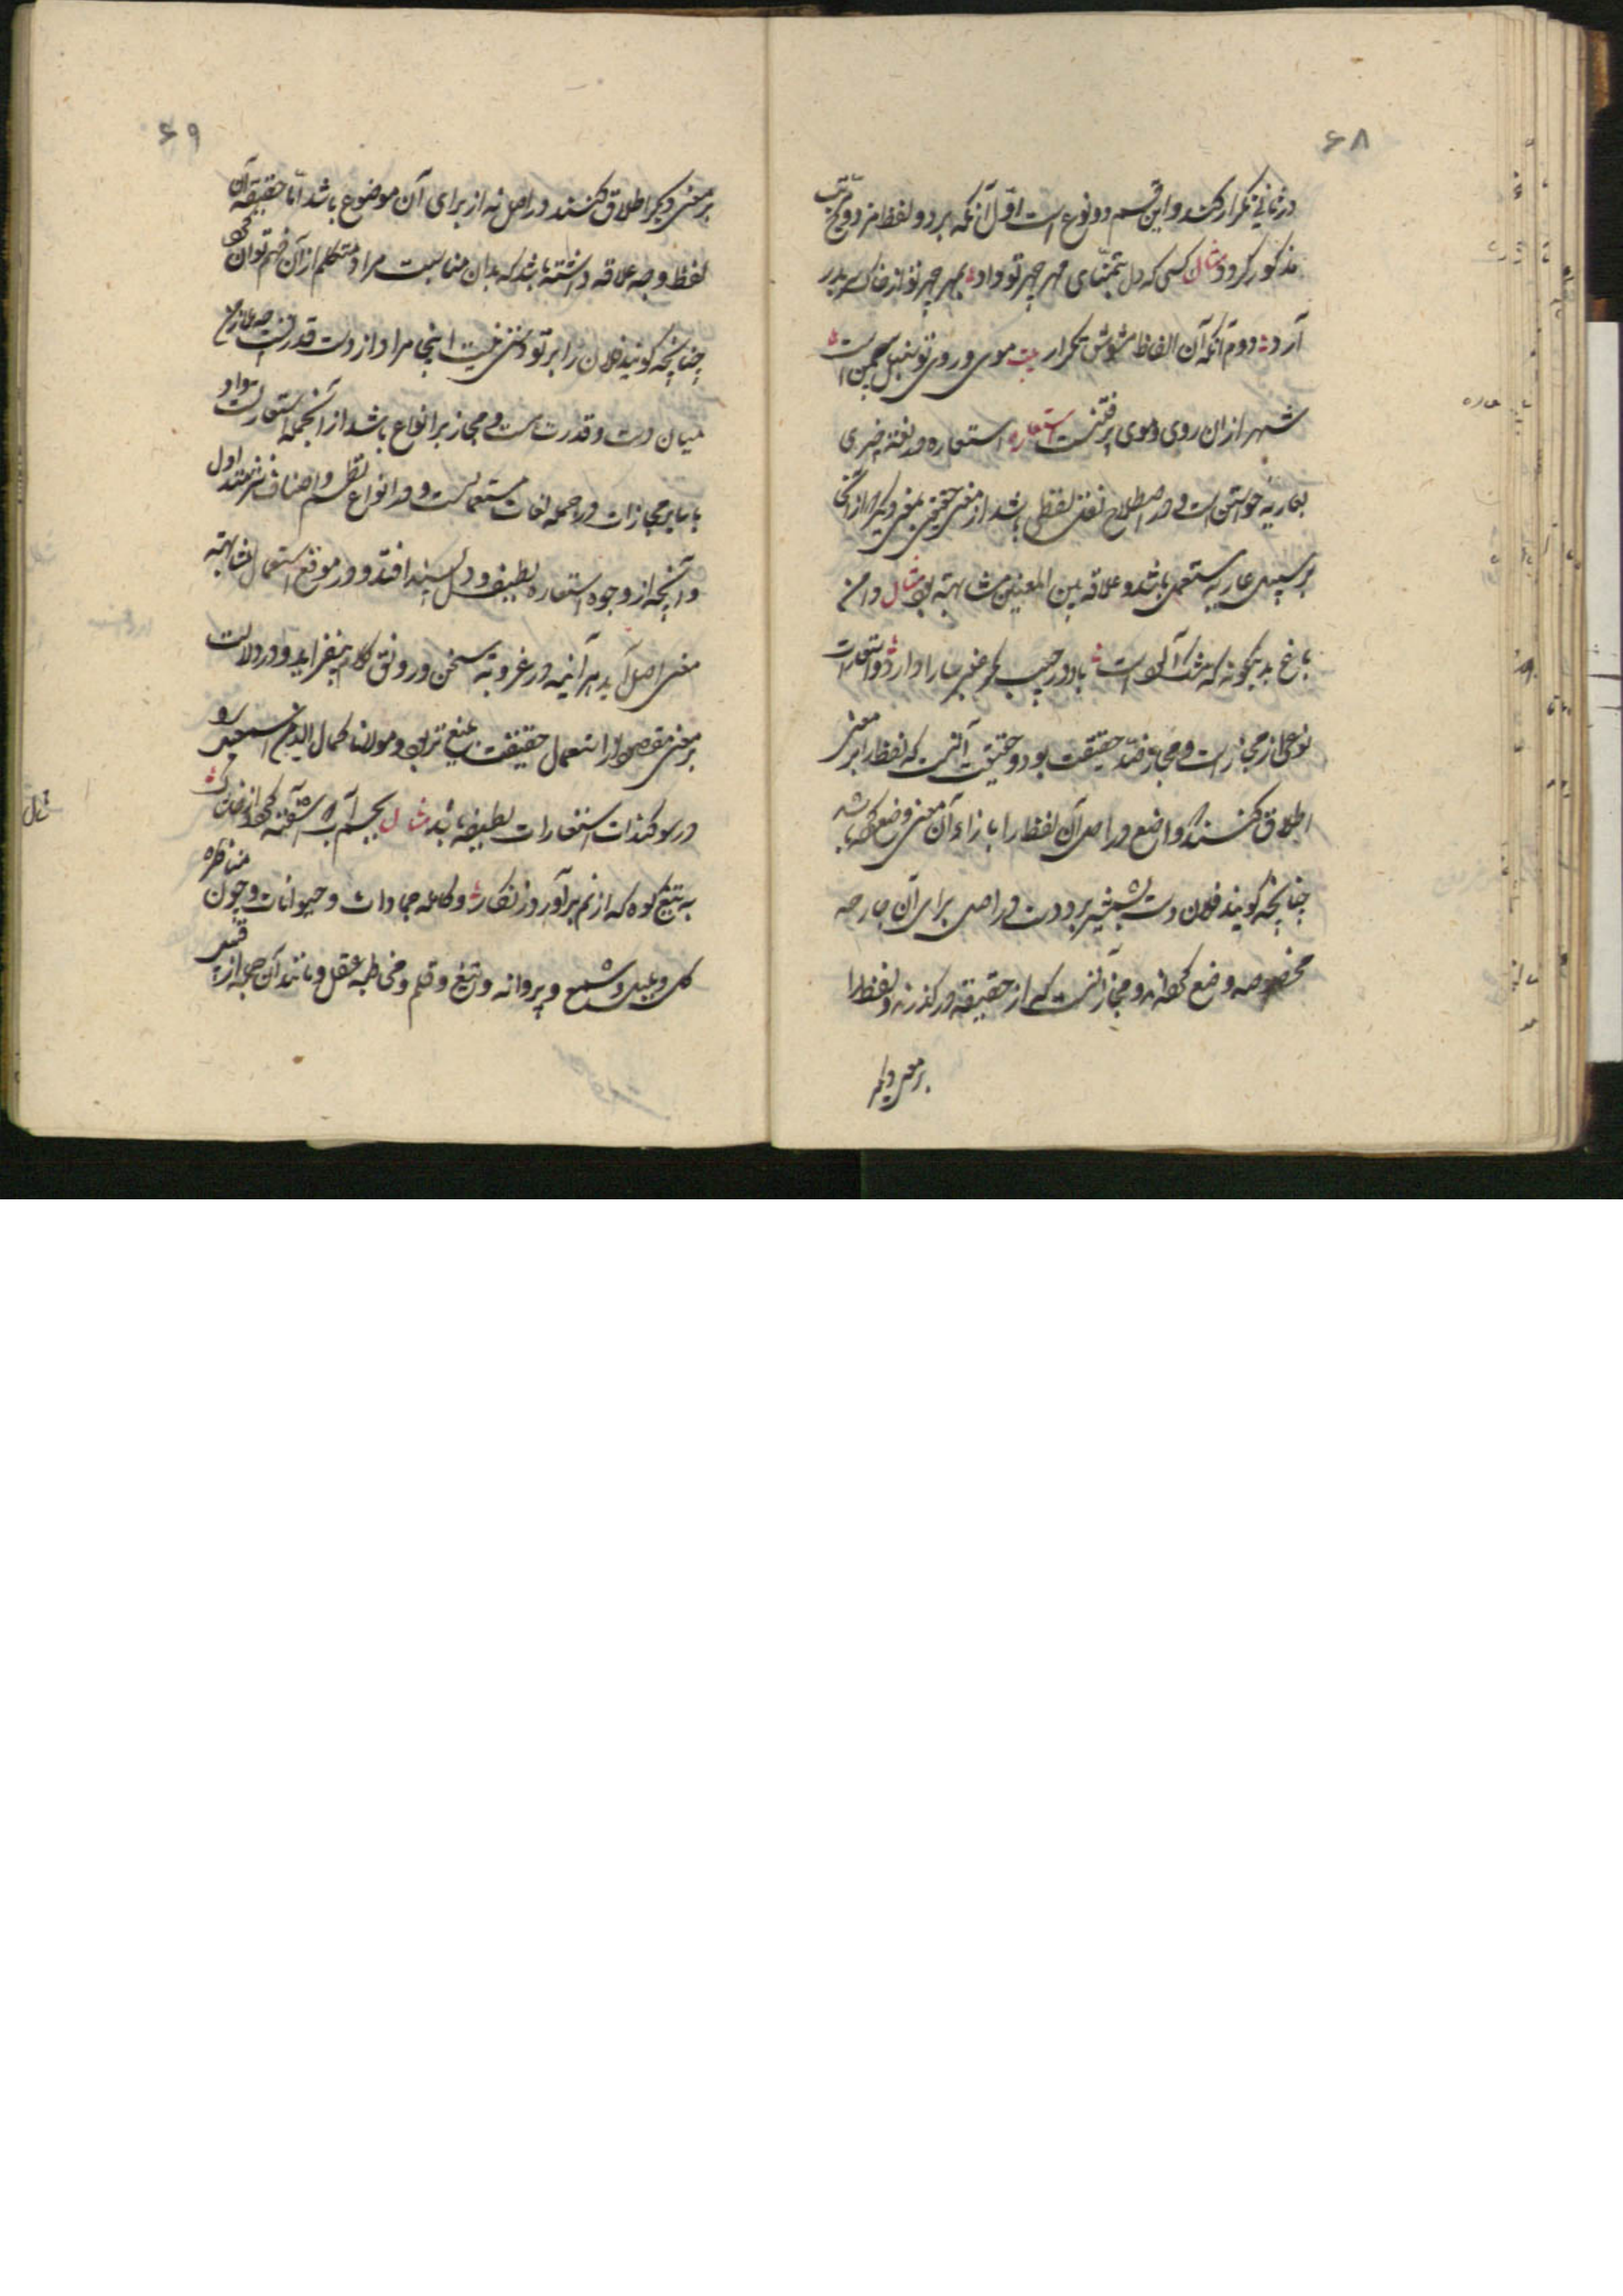 ۶۸
در ثانی تکرار کنند و این قسم دو نوع است اول آنکه هر دو لفظ مزدوج بترتیب
مذکور گردد مثال کسی که دل بتمنای مهر چهر تو داد بمهر چهر تو از خاک سر بدر
آرد دوم آنکه آن الفاظ مشوش تکرار بیت موی و روی تو سنبل و سمن است
شهر ازان روی و موی پر فتنست استعاره استعاره در لغة چیزی
بعاریه خواستن است و در اصطلاح نقل لفظی باشد از معنی حقیقی بمعنی دیگر
بر سبیل عاریه مستعمل باشد و علاقه بین المعنیین مشابهة بود مثال دامن
باغ بدینگونه که مشک آلودست باد در جیب مگر عنبر سارا دارد و استعارت
نوعی از مجاز است و مجاز ضد حقیقت بود و حقیقت آنست که لفظ را بر معنی
اطلاق کنند که واضع در اصل آن لفظ را بازاء آن معنی وضع کرده باشد
چنانچه گویند فلان دست بشمشیر برد و دست در اصل برای آن جارحه
مخصوصه وضع کرده‌اند و مجاز آنست که از حقیقة درگذرند و لفظ را
بر معنی دیگر
۶۹
بر معنی دیگر اطلاق کنند در اصل نه از برای آن موضوع باشد اما حقیقة آن
لفظ وجه علاقه داشته باشد که بدان مناسبت مراد متکلم از آن فهم توان کرد
چنانچه گویند فلان را بر تو دستی نیست اینجا مراد از دست قدرتست چه علاقه
میان دست و قدرت هست و مجاز بر انواع باشد از آنجمله استعارتست و این
باب بر مجازات در جمله لغات مستعملست و در انواع نظم و اصناف نثر متداول
و آنچه از وجوه استعاره لطیف و دلپسند افتد و در موقع استعمال مشابهة
معنی اصل آید هر آینه در عذوبة سخن و رونق کلام بیفزاید و در دلالت
بر معنی مقصود از استعمال حقیقت بلیغ تر بود و مولانا کمال الدین اسمعیل را
در سوگندات استعارات لطیفه باشد مثال بچشم آب
به تیغ کوه که از نم برآورد زنگار و مکالمه جمادات و حیوانات و چون مناظره
گل و بلبل و شمع و پروانه و تیغ و قلم و مخاطبه عقل و مانند آن جمله ازین قبیل